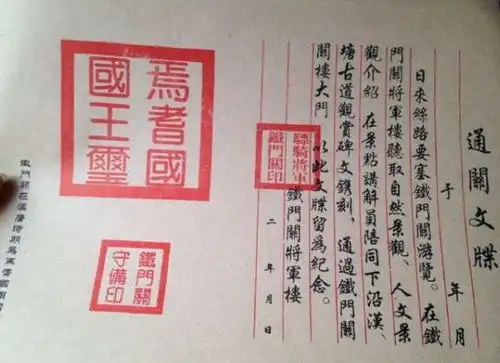 通關文牒
于 年 月
日來絲路要塞鐵門關游覽。在鐵
門關將軍樓聽取自然景觀、人文景
觀介紹 在景點講解員陪同下沿漢、
塘古道觀賞碑文鐫刻，通過鐵門關
關樓大門 以此文牒留為紀念。
鐵門關將軍樓
二 年 月 日
驃騎將軍
鐵門關印
焉耆國
國王璽
鐵門關
守備印
鐵門關在漢唐時期為焉耆國